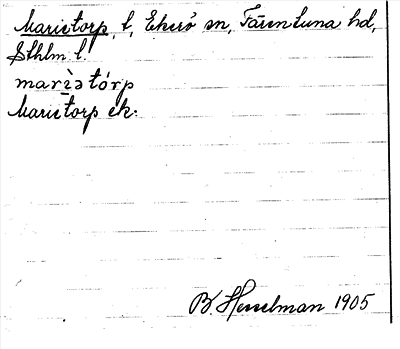 Marietorp, t, Ekerö sn, Färentuna hd,
Sthlm l.
marìətórp
Marietorp ek.
B. Hesselman 1905